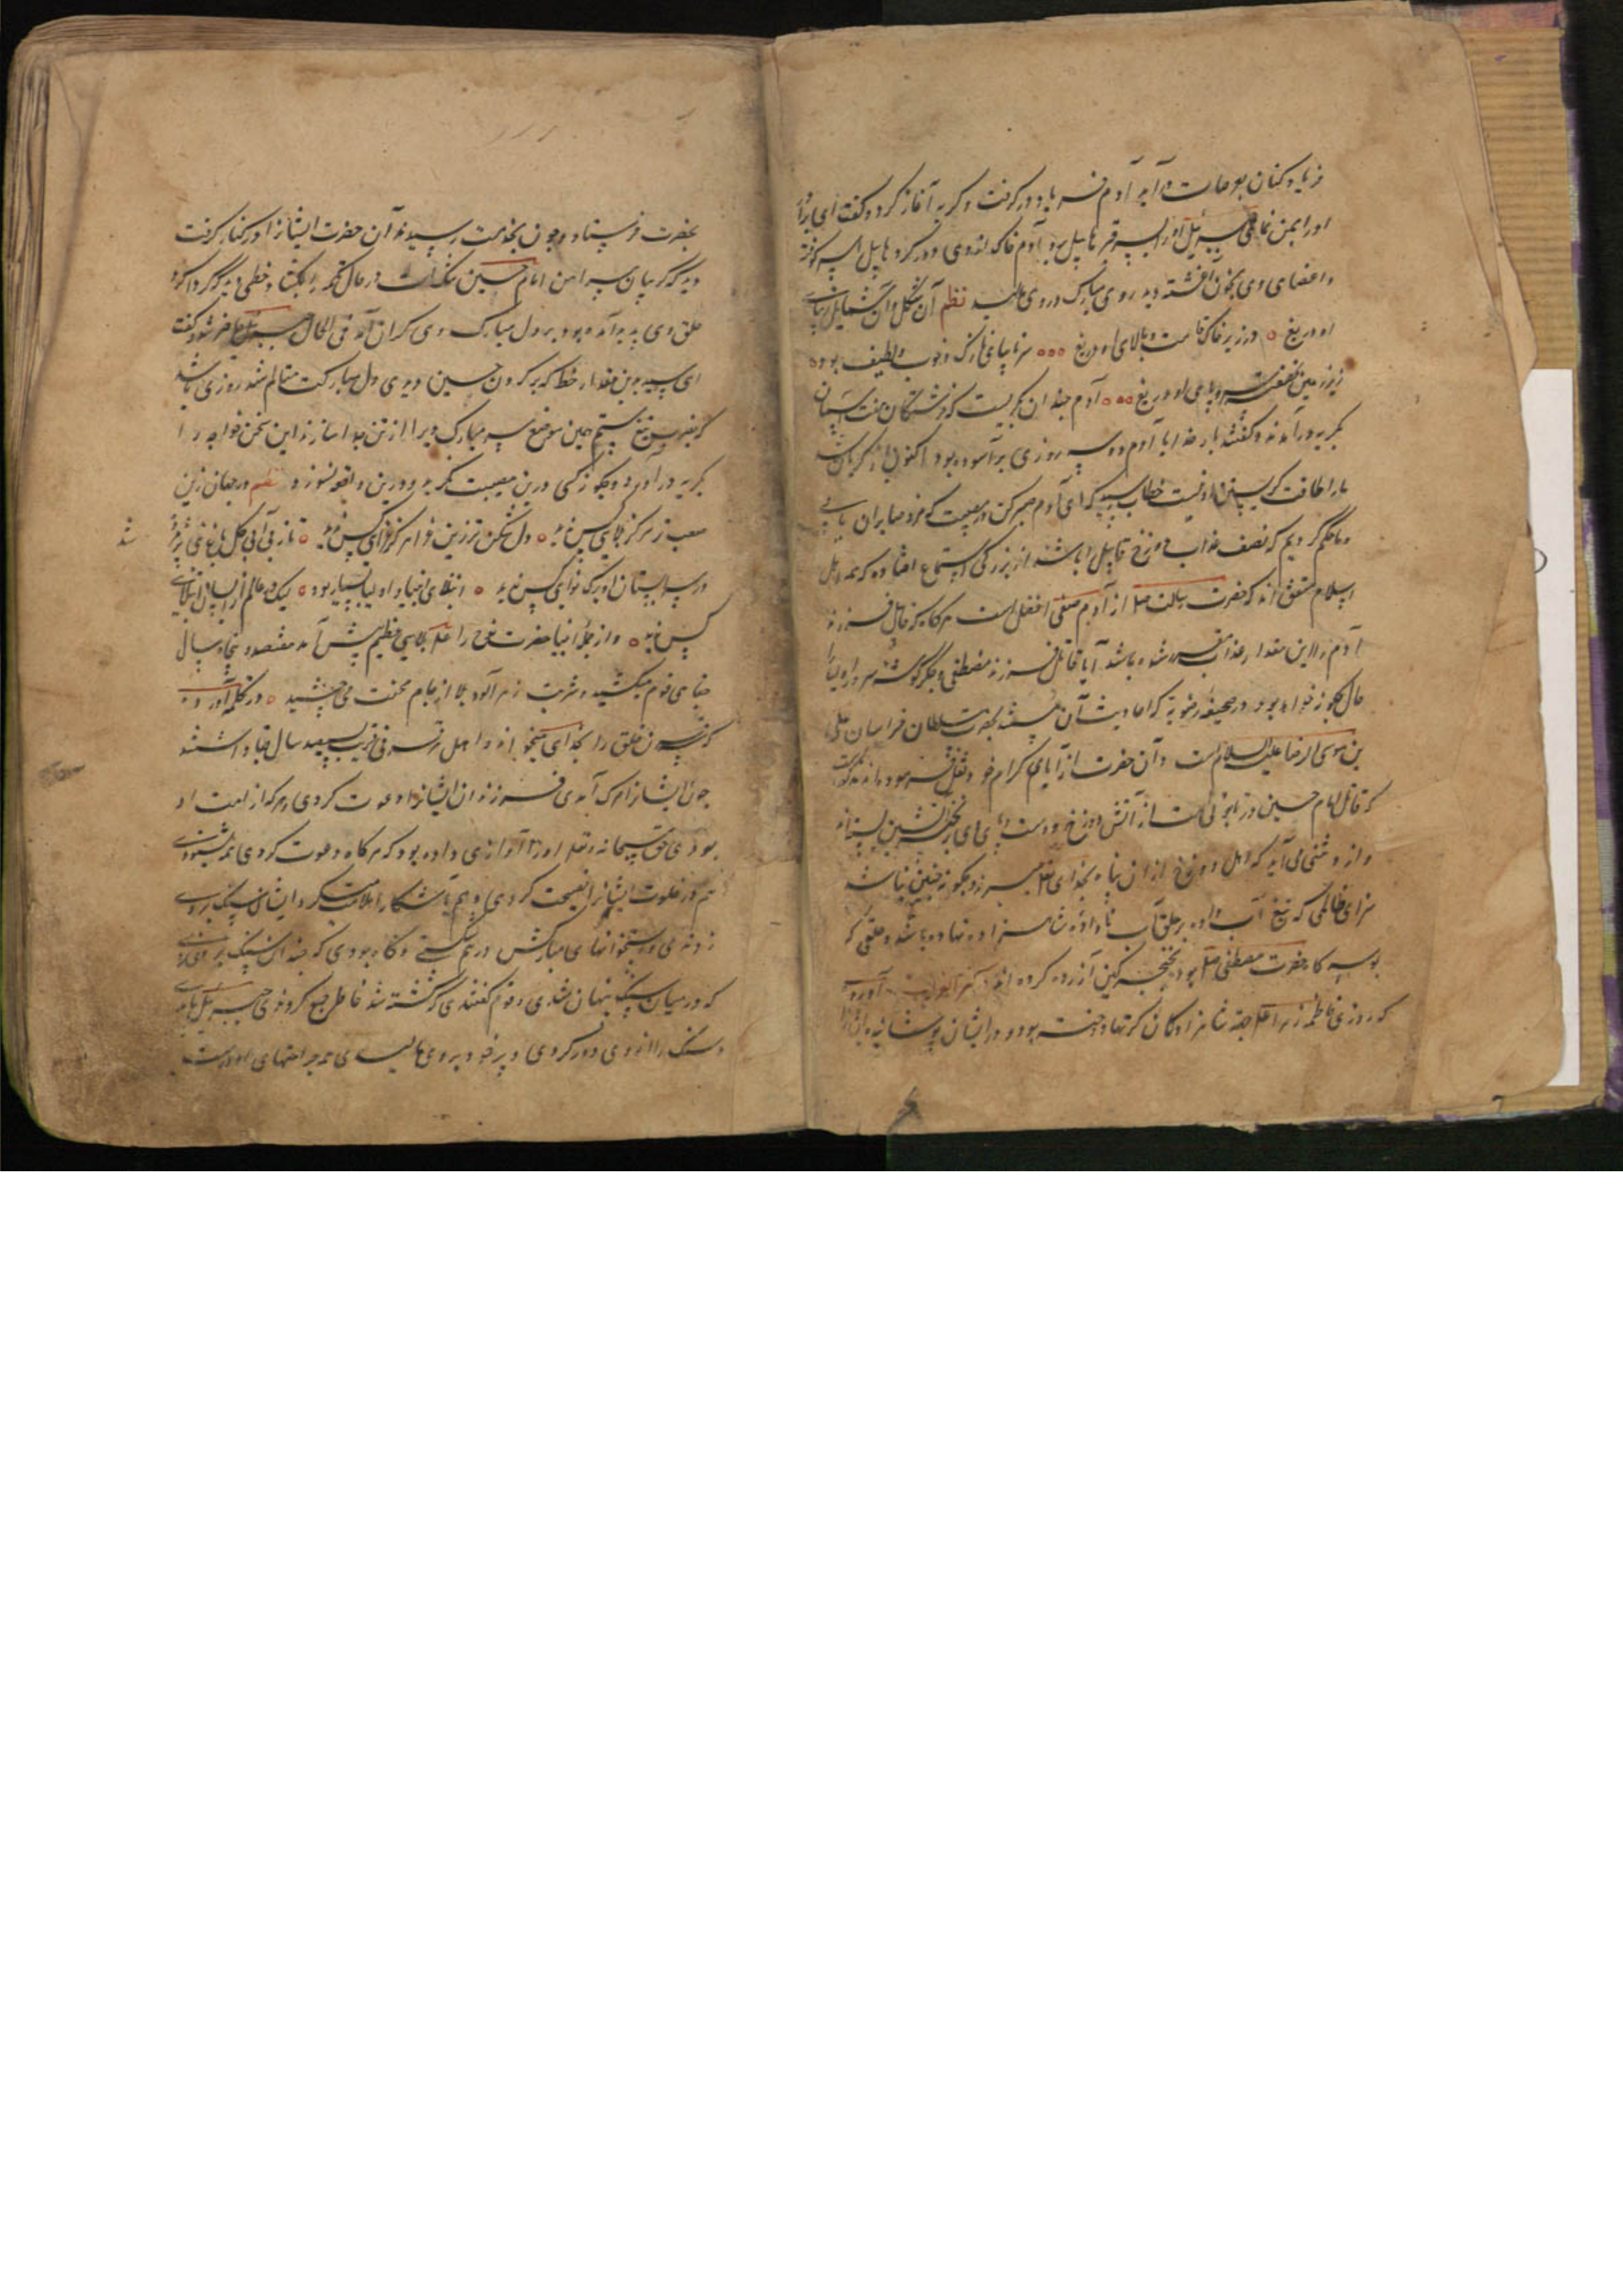 فریاد کنان بعرصات درآید آدم فریاد درگرفت و گریه آغاز کرد و گفت ای برادر
او را بمن نمای جبرئیل او را بسر قبر هابیل برد آدم خاک از روی دور کرد هابیل را سر کوفته
و اعضای وی بخون آغشته دید روی مبارک در روی مالید نظم آن شکل و آن شمایل زیبای
او دریغ در زیر خاک قامت و بالای او دریغ سر تا بپای نازک و خوب و لطیف بود
زیر زمین نهفته سر و پای او دریغ آدم چندان بگریست که فرشتگان هفت آسمان
بگریه درآمدند و گفتند بار خدایا آدم دو سه روزی برآسوده بود اکنون گریان شد
ما را طاقت گریستن او نیست خطاب رسید که ای آدم صبر کن درین مصیبت که مزد صابران یابی
و ما حکم کردیم که نصف عذاب دوزخ قابیل را باشد از بزرگی استماع افتاده که همه اهل
اسلام متفق اند که حضرت رسالت صلعم از آدم صفی افضل است هرگاه که قاتل فرزند
آدم را این مقدار عذاب مقرر شده باشد آیا قاتل فرزند مصطفی و جگرگوشه سرور اولیا را
حال چگونه خواهد بود در صحیفه رضویه که احادیث آن مسند بحضرت سلطان خراسان علی
بن موسی الرضا علیه السلام است و آن حضرت از آبای کرام خود نقل فرموده اند مذکورست
که قاتل امام حسین در تابوتی است از آتش دوزخ و دست و پای او بزنجیر آتشین بسته اند
و از وی نتنی می آید که اهل دوزخ از آن پناه بخدای تعالی میبرند و چگونه چنین نباشد
سزای ظالمی که تیغ آب داده بر حلق آب ناداده شاهزاده نهاده باشد و حلقی که
بوسه گاه حضرت مصطفی صلعم بود بخنجر کین آزرده کرده اند کنز الغرایب آورده
که روزی فاطمه زهرا علیها جهة شاهزادگان کرتها دوخته بود و در ایشان پوشانیده ایشانرا
بحضرت فرستاد و چون بخدمت رسیدند آن حضرت ایشانرا در کنار گرفت
دید که گریبان پیراهن امام حسین تنگ است در حال تکمه را بگشاد و خطی دید که گرداگرد
حلق وی پدید آمده بود بر دل مبارک وی گران آمد فی الحال جبرئیل حاضر شد و گفت
ای سید بدین مقدار خط که بر گردن حسین دیدی دل مبارکت متألم شد روزی باشد
که بضرب تیغ ستم همین موضع سر مبارک ویرا از تن جدا سازند این سخن خواجه را
بگریه درآورد و چگونه کسی درین مصیبت نگرید و درین واقعه نسوزد نظم در جهان زین
صعب تر هرگز بلای کس ندید دل شکن تر زین نوا هرگز نوای کس ندید تا ز بی آبی گل باغ نبی پژمرد
در سرابستان او برگ نوای کس ندید ابتلای انبیا و اولیا بسیار بود لیک در عالم ازینسان ابتلای
کس ندید و از جمله انبیا حضرت نوح را علم بلایی عظیم پیش آمد هفتصد و پنجاه سال
جفای قوم میکشید و شربت زهرآلود بلا از جام محنت می چشید در تکمله آورده
که چون خلق را بخدای میخواند و اهل قرنی قریب سیصد سال بقا داشتند
چون ایشانرا مرگ آمدی فرزندان ایشانرا دعوت کردی و هر که از امت او
بودی حق سبحانه و تعالی او را آوازی داده بود که هرگاه دعوت کردی همه شنیدندی
هم در خلوت ایشانرا نصیحت کردی و هم بآشکارا ملامت میکرد و ایشان سنگ بروی
زدندی و استخوانهای مبارکش درهم شکستی و گاه بودی که چندان سنگ بر وی زدندی
که در میان سنگ پنهان شدی و قوم گفتندی که کشته شد خاطر جمع کردندی جبرئیل بیامدی
و سنگ را از وی دور کردی و پر خود بر وی مالیدی همه جراحتهای او درست
شد